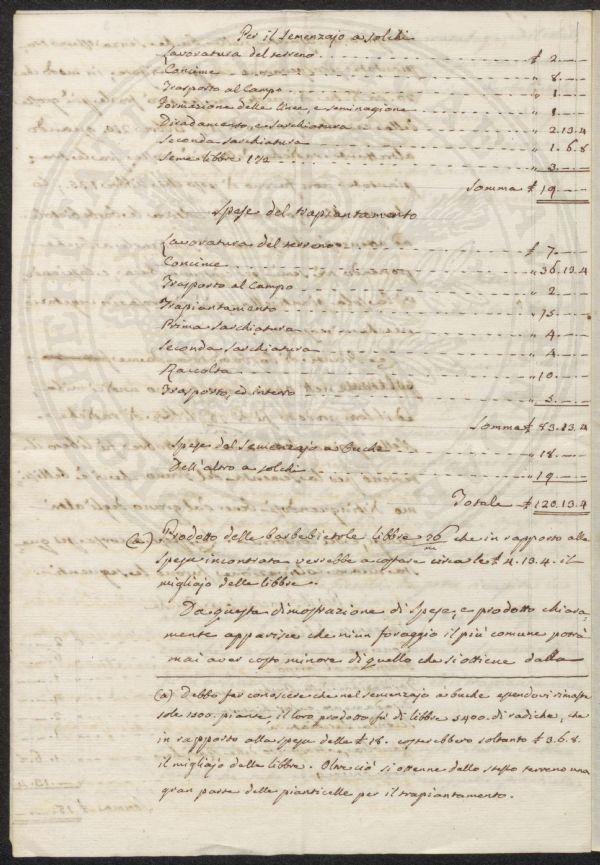 Per il Semenzajo a solchi
Lavoratura del terreno - - - £ 2.--.--
Concime - - - " 8.--.--
Trasporto al Campo - - - " 1.--.--
Formazione delle linee, e seminagione - - - " 1.--.--
Diradamento, e sarchiatura - - - " 2.13.4
Seconda sarchiatura - - - " 1.6.8
Seme libbre 1 1/2 - - - " 3.--.--
Somma £ 19.--.--
Spese del trapiantamento
Lavoratura del terreno - - - £ 7.--.--
Concime - - - " 36.13.4
Trasporto al Campo - - - " 2.--.--
Trapiantamento - - - " 15.--.--
Prima sarchiatura - - - " 4.--.--
Seconda sarchiatura - - - " 4.--.--
Raccolta - - - " 10.--.--
Trasporto, ed interro - - - " 5.--.--
Somma £ 83.13.4
Spese del Semenzajo a buche - - - " 18.--.--
Dell'altro a solchi - - - " 19.--.--
Totale £ 120.13.4
(a) Prodotto delle barbebietole libbre 26/mi che in rapporto alla
spesa incontrata verrebbe a costare circa le £ 4.13.4 il
migliajo delle libbre.
Da questa dimostrazione di spese, e prodotto chiara-
mente apparisce che niun foraggio il più comune potrà
mai aver costo minore di quello che si ottiene dalla
(a) Debbo far conoscere che nel semenzajo a buche essendovi rimaste
sole 1200. piante, il loro prodotto fù di libbre 5400. di radiche, che
in rapporto alla spesa delle £ 18. costerebbero soltanto £ 3.6.8.
il migliajo delle libbre. Oltre ciò si ottenne dallo stesso terreno una
gran parte delle pianticelle per il trapiantamento.